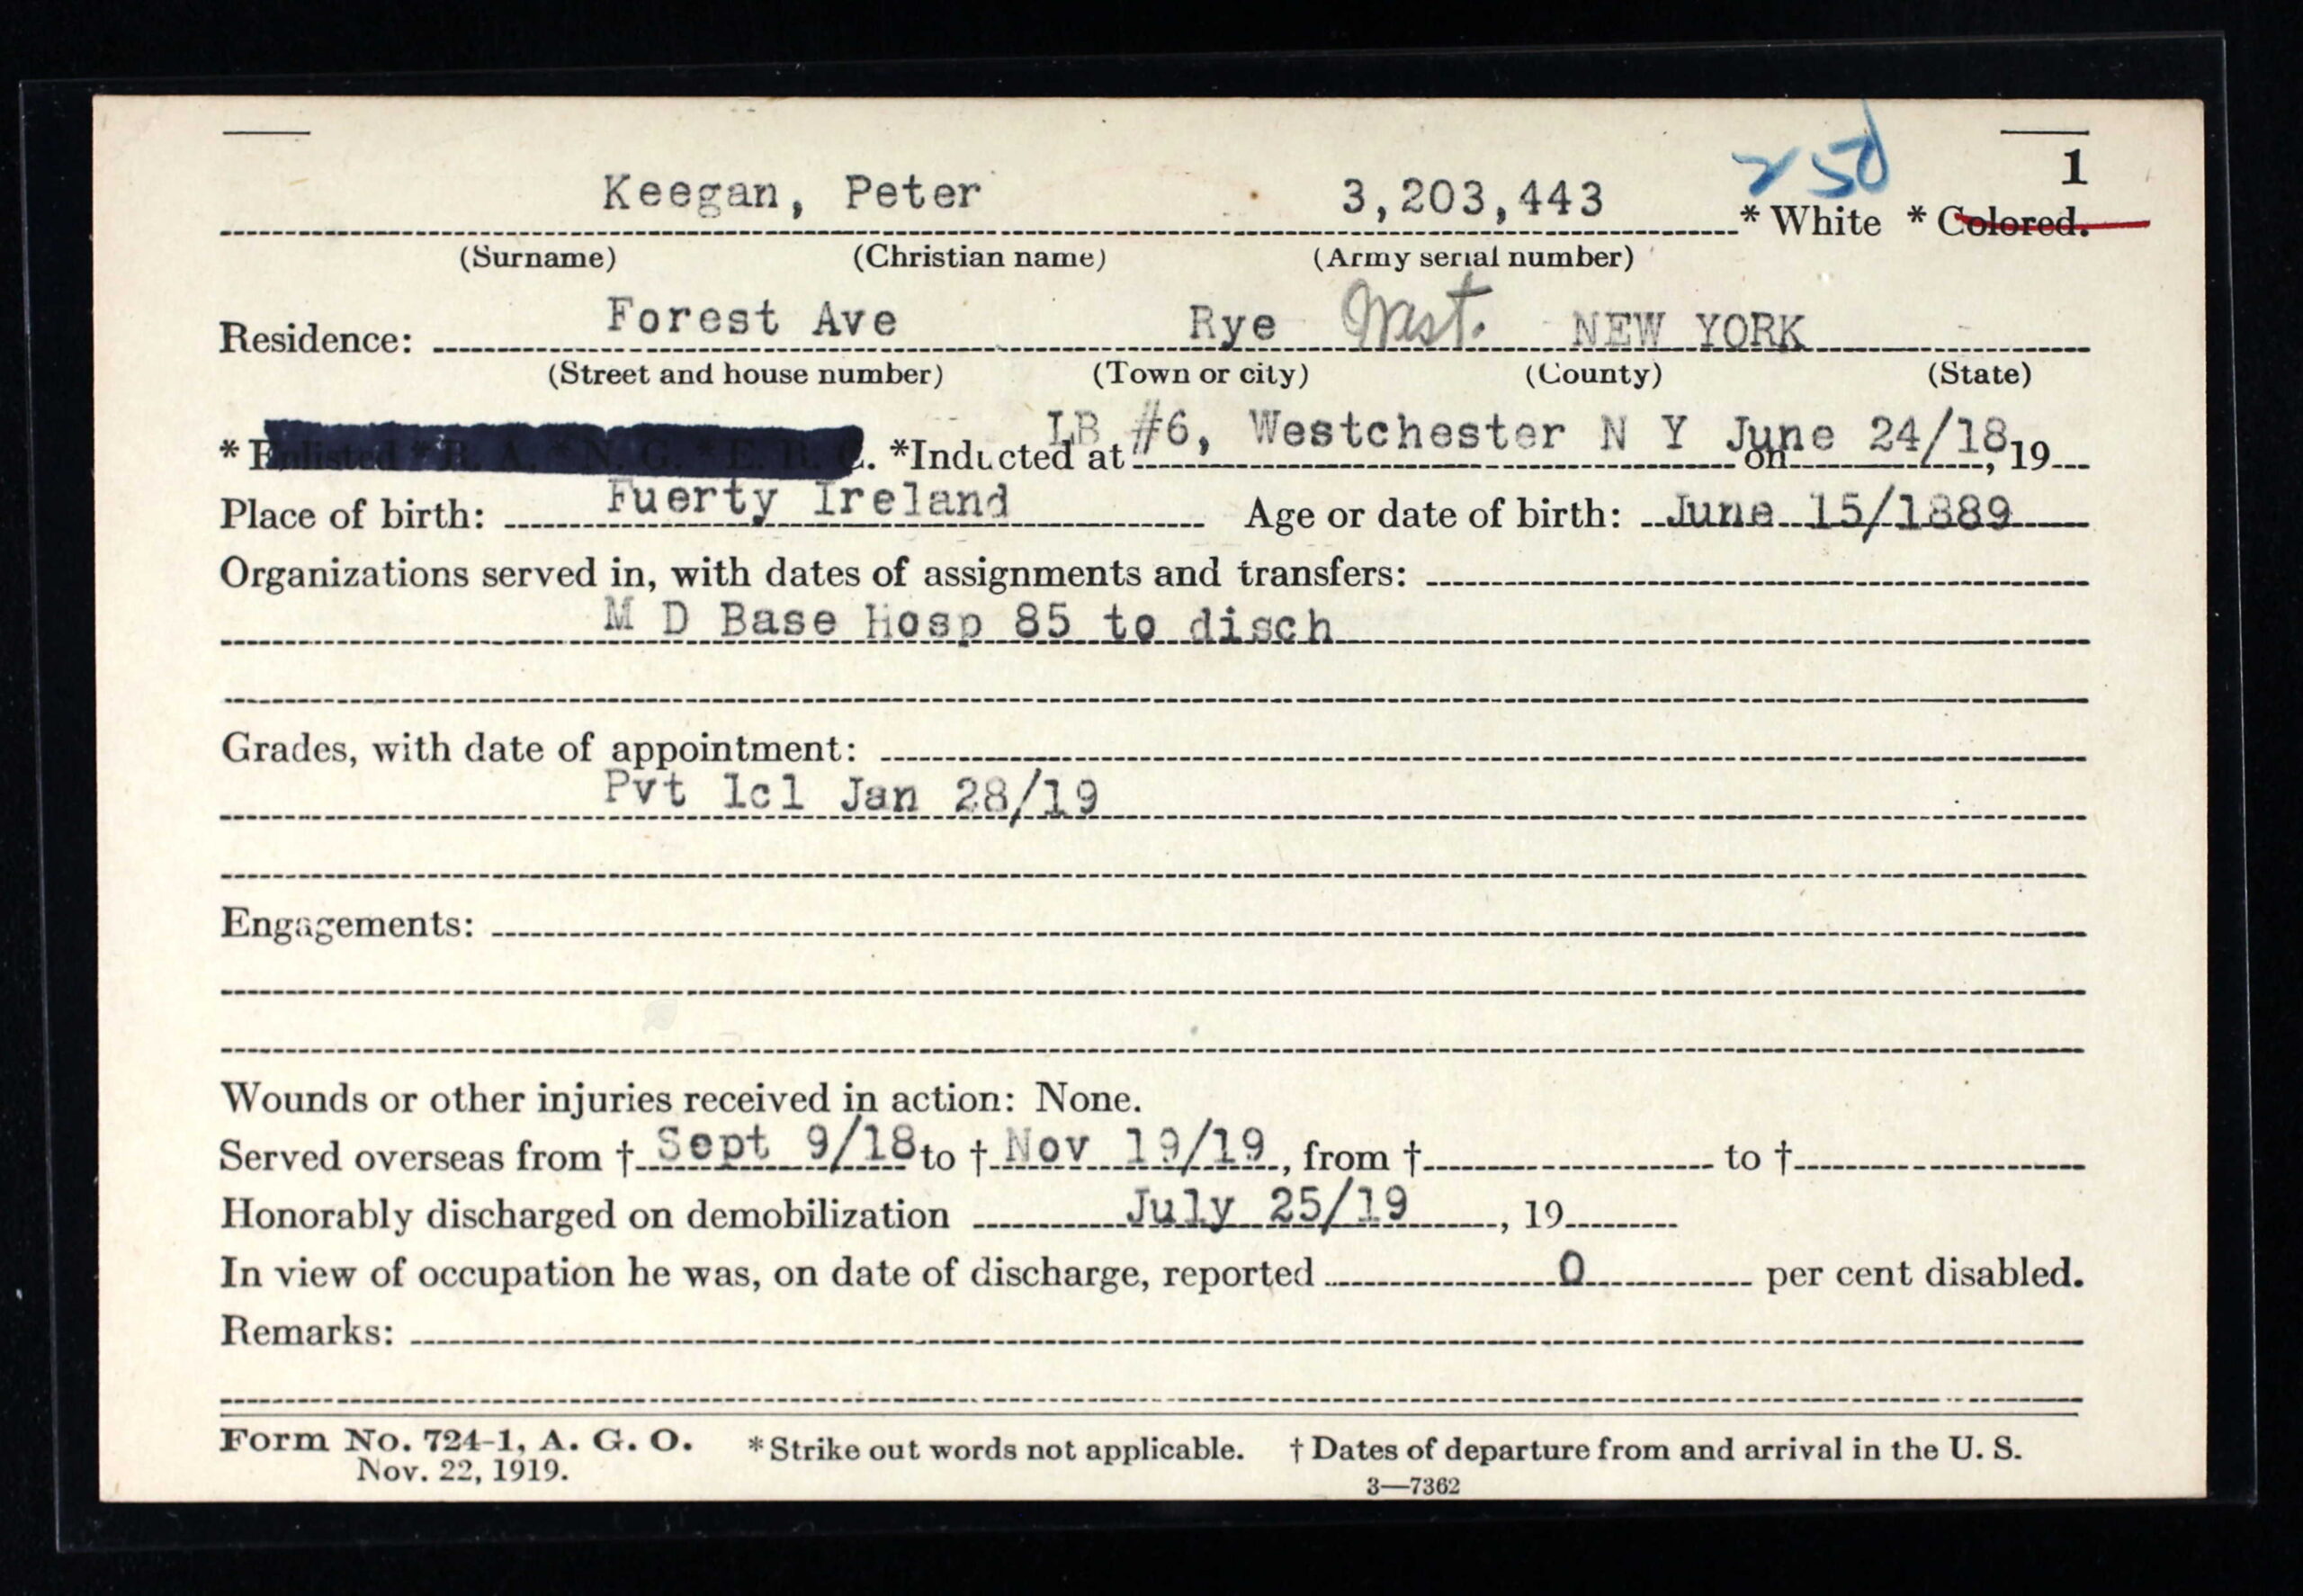 250 1
Keegan, Peter 3,203,443 * White * Colored.
(Surname) (Christian name) (Army serial number)
Residence: Forest Ave Rye West. NEW YORK
(Street and house number) (Town or city) (County) (State)
* Enlisted * R. A. * N. G. * E. R. C. *Inducted at LB #6, Westchester N Y on June 24/18, 19
Place of birth: Fuerty Ireland Age or date of birth: June 15/1889
Organizations served in, with dates of assignments and transfers:
M D Base Hosp 85 to disch
Grades, with date of appointment:
Pvt 1cl Jan 28/19
Engagements:
Wounds or other injuries received in action: None.
Served overseas from † Sept 9/18 to † Nov 19/19, from † to †
Honorably discharged on demobilization July 25/19, 19
In view of occupation he was, on date of discharge, reported 0 per cent disabled.
Remarks:
Form No. 724-1, A. G. O. * Strike out words not applicable. † Dates of departure from and arrival in the U. S.
Nov. 22, 1919. 3—7362